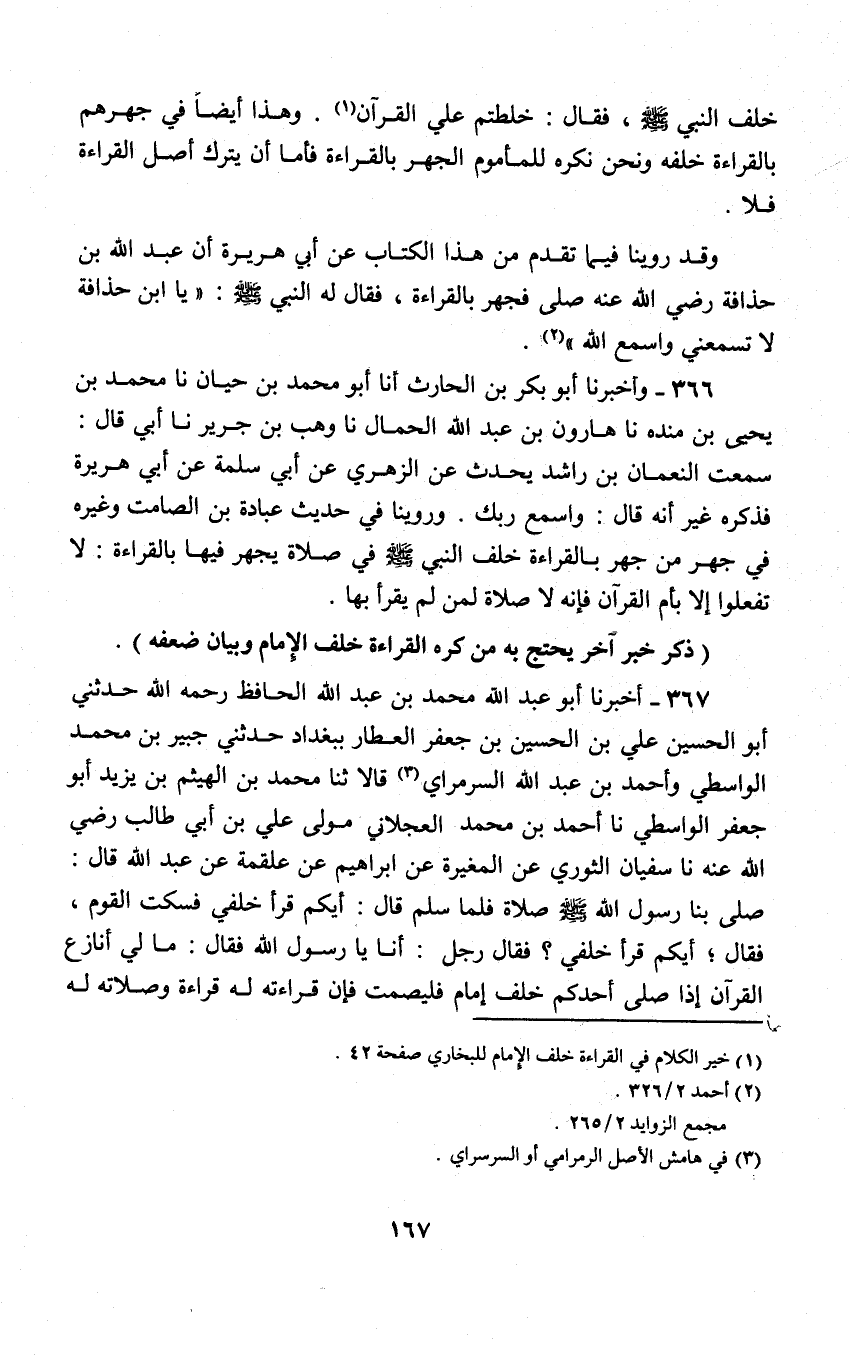 خلف النبي ﷺ ، فقال : خلطتم علي القرآن(١) . وهذا أيضاً في جهرهم
بالقراءة خلفه ونحن نكره للمأموم الجهر بالقراءة فأما أن يترك أصل القراءة
فلا .
وقد روينا فيما تقدم من هذا الكتاب عن أبي هريرة أن عبد الله بن
حذافة رضي الله عنه صلى فجهر بالقراءة ، فقال له النبي ﷺ : « يا ابن حذافة
لا تسمعني واسمع الله »(٢) .
٣٦٦ - وأخبرنا أبو بكر بن الحارث أنا أبو محمد بن حيان نا محمد بن
يحيى بن منده نا هارون بن عبد الله الحمال نا وهب بن جرير نا أبي قال :
سمعت النعمان بن راشد يحدث عن الزهري عن أبي سلمة عن أبي هريرة
فذكره غير أنه قال : واسمع ربك . وروينا في حديث عبادة بن الصامت وغيره
في جهر من جهر بالقراءة خلف النبي ﷺ في صلاة يجهر فيها بالقراءة : لا
تفعلوا إلا بأم القرآن فإنه لا صلاة لمن لم يقرأ بها .
( ذكر خبر آخر يحتج به من كره القراءة خلف الإمام وبيان ضعفه ) .
٣٦٧ - أخبرنا أبو عبد الله محمد بن عبد الله الحافظ رحمه الله حدثني
أبو الحسين علي بن الحسين بن جعفر العطار ببغداد حدثني جبير بن محمد
الواسطي وأحمد بن عبد الله السرمراي(٣) قالا ثنا محمد بن الهيثم بن يزيد أبو
جعفر الواسطي نا أحمد بن محمد العجلاني مولى علي بن أبي طالب رضي
الله عنه نا سفيان الثوري عن المغيرة عن ابراهيم عن علقمة عن عبد الله قال :
صلى بنا رسول الله ﷺ صلاة فلما سلم قال : أيكم قرأ خلفي فسكت القوم ،
فقال ؛ أيكم قرأ خلفي ؟ فقال رجل : أنا يا رسول الله فقال : ما لي أنازع
القرآن إذا صلى أحدكم خلف إمام فليصمت فإن قراءته له قراءة وصلاته له
(١) خير الكلام في القراءة خلف الإمام للبخاري صفحة ٤٢ .
(٢) أحمد ٣٢٦/٢ .
مجمع الزوايد ٢٦٥/٢ .
(٣) في هامش الأصل الرمرامي أو السرسراي .
١٦٧